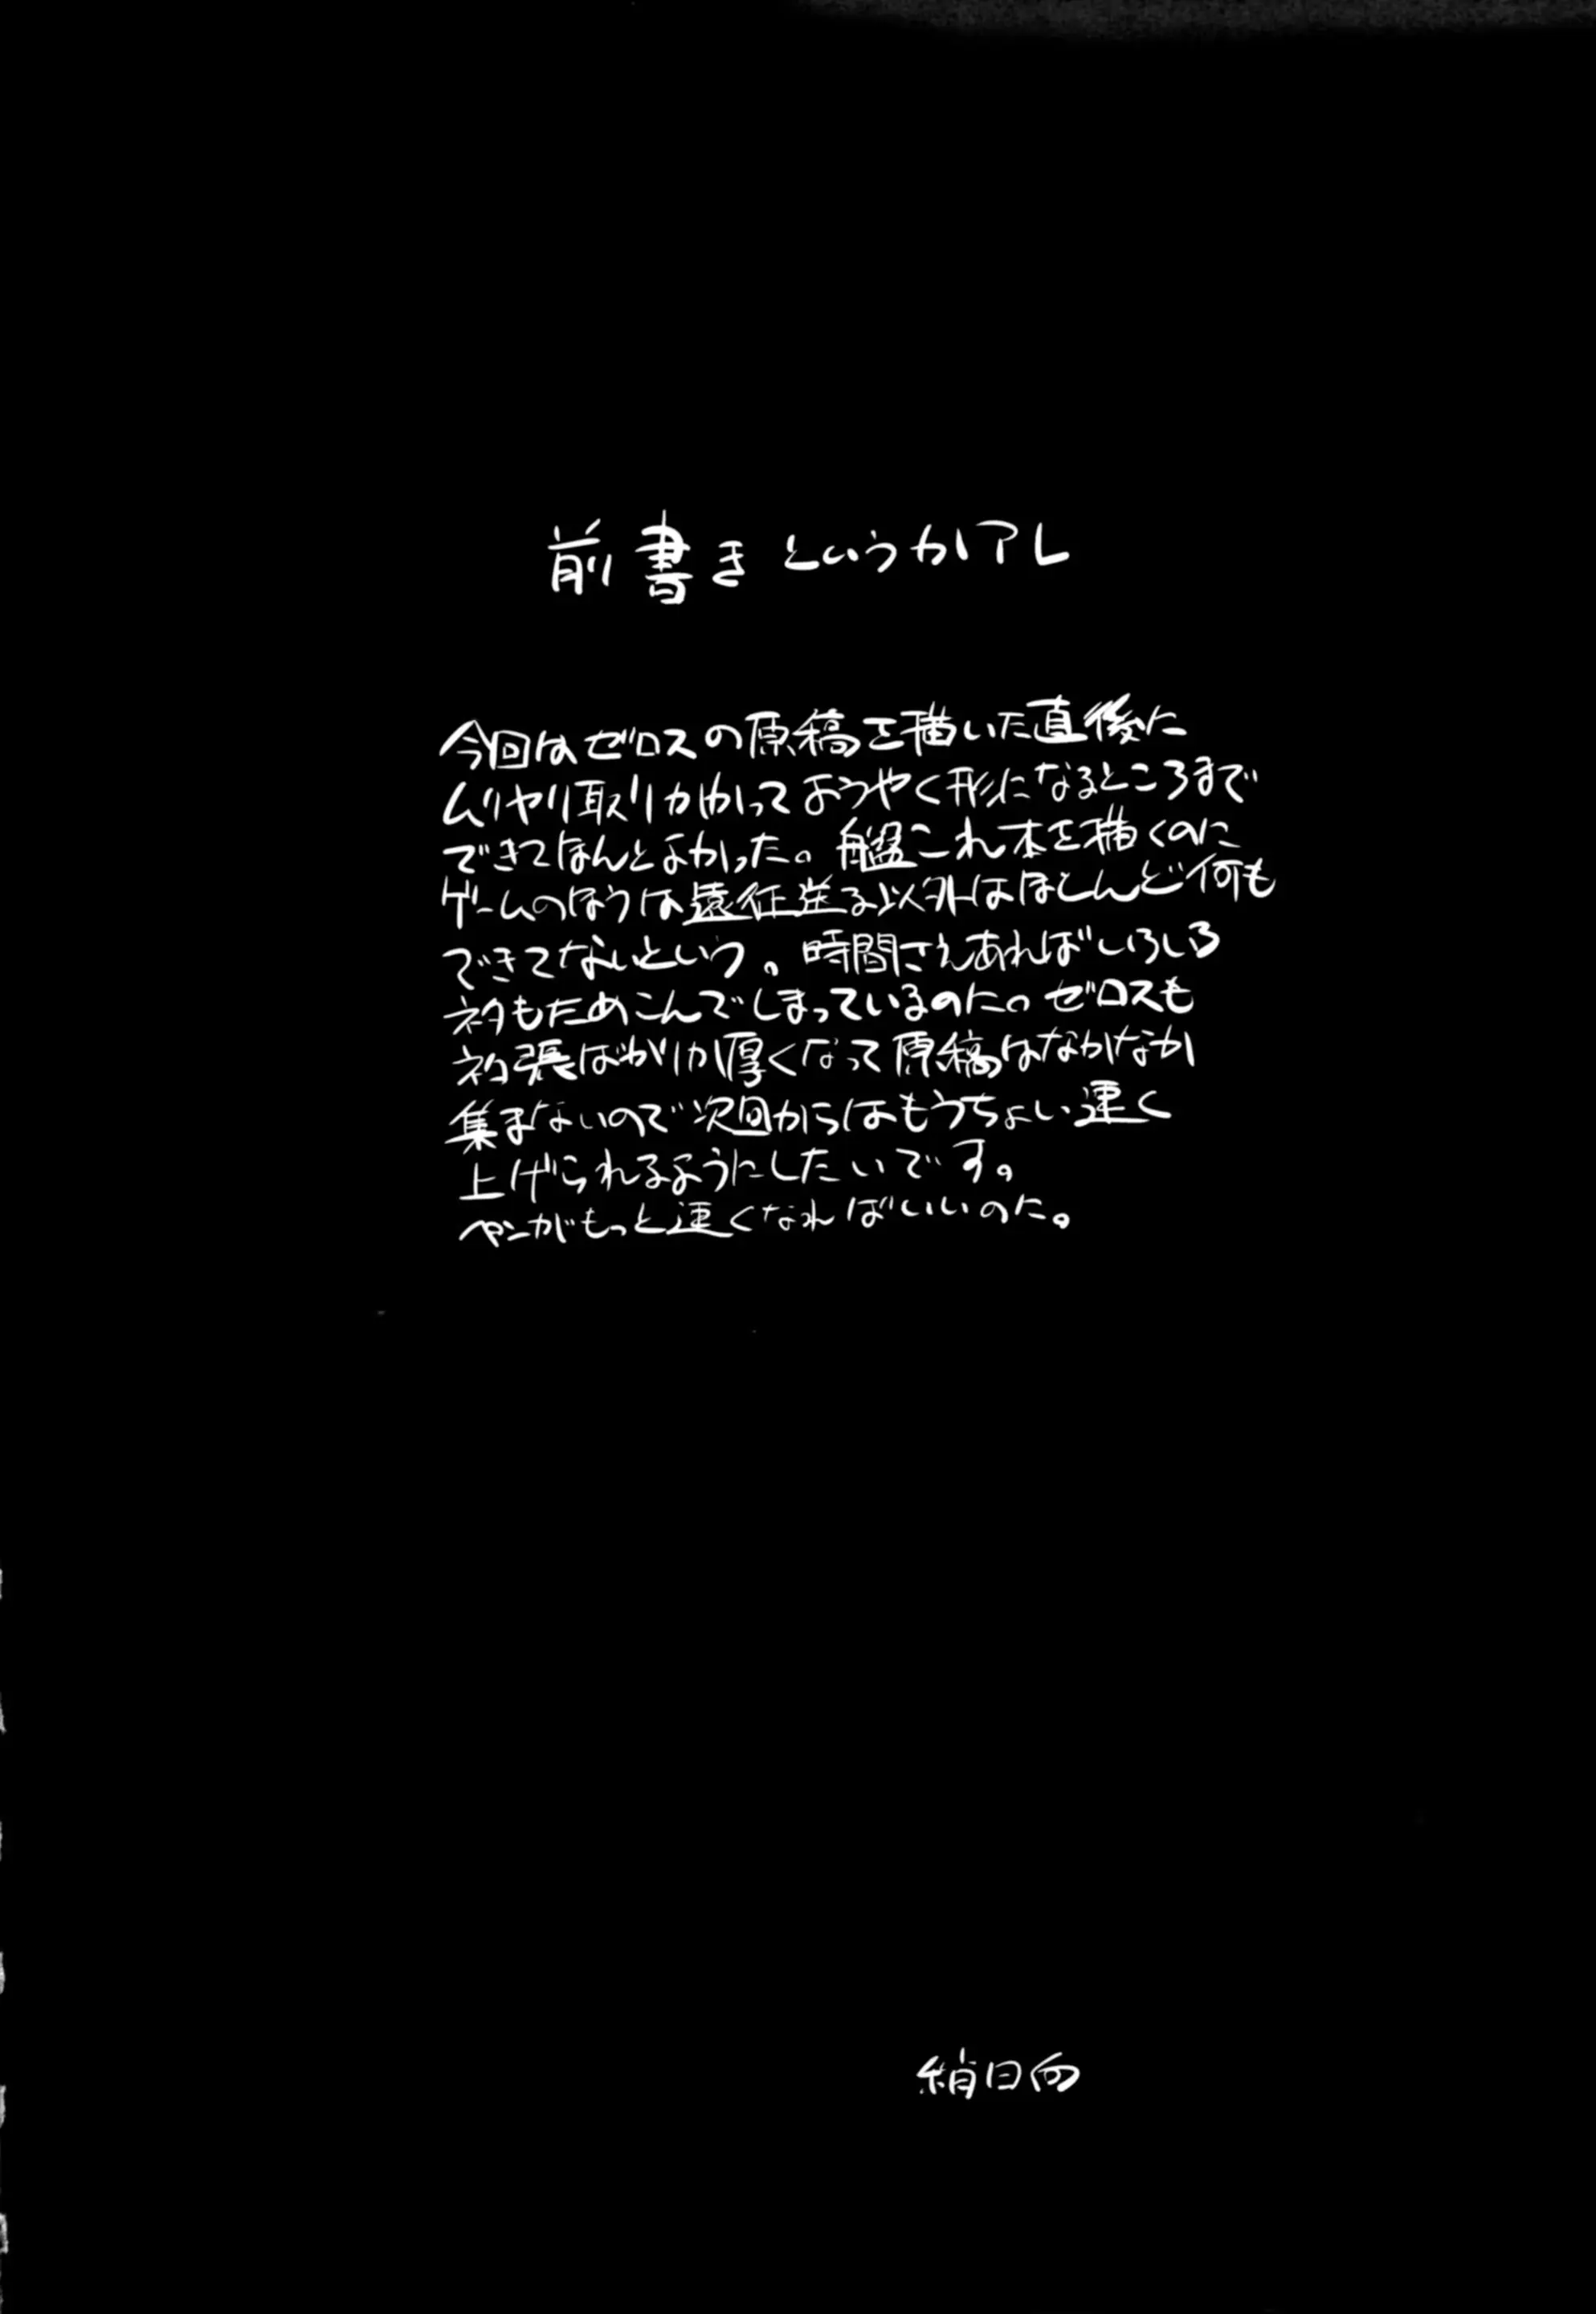 前書きというかアレ
今回はゼロスの原稿を描いた直後に
ムリヤリ取りかかってようやく形になるところまで
できてほんとよかった。艦これ本を描くのに
ゲームのほうは遠征送る以外はほとんど何も
できてないという。時間さえあればいろいろ
ネタもためこんでしまっているのに。ゼロスも
ネタ張ばかり厚くなって原稿はなかなか
集まないので次回からはもうちょい速く
上げられるようにしたいです。
ペンがもっと速くなればいいのに。
梢日向